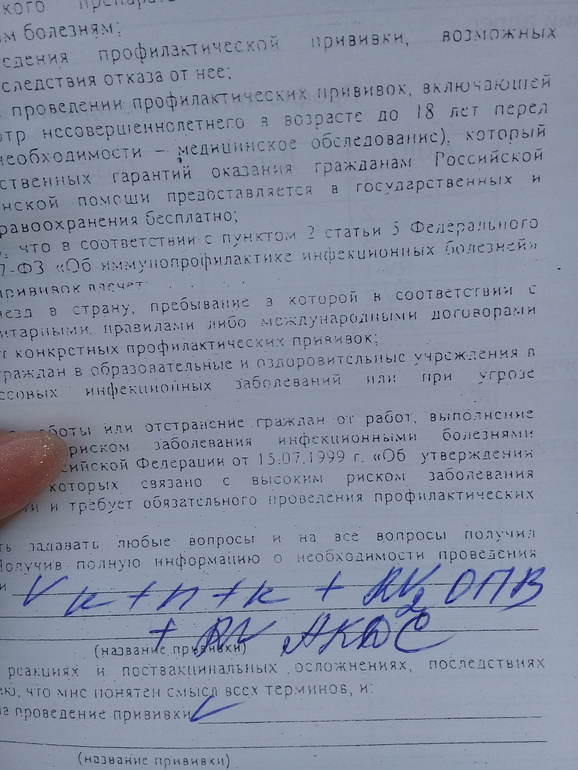 ского препарат
ым болезням;
едения профилактической прививки, возможных
следствия отказа от нее;
проведении профилактических прививок, включающей
отр несовершеннолетнего в возрасте до 18 лет перед
необходимости – медицинское обследование), который
ственных гарантий оказания гражданам Российской
нской помощи предоставляется в государственных и
равоохранения бесплатно;
, что в соответствии с пунктом 2 статьи 5 Федерального
7-ФЗ «Об иммунопрофилактике инфекционных болезней»
прививок влечет:
ыезд в страну, пребывание в которой в соответствии с
итарными правилами либо международными договорами
т конкретных профилактических прививок;
граждан в образовательные и оздоровительные учреждения в
ссовых инфекционных заболеваний или при угрозе
работы или отстранение граждан от работ, выполнение
риском заболевания инфекционными болезнями
сийской Федерации от 15.07.1999 г. «Об утверждении
которых связано с высоким риском заболевания
и и требует обязательного проведения профилактических
ть задавать любые вопросы и на все вопросы получил
Получив полную информацию о необходимости проведения
и
V к + п + к + RV2 ОПВ
+ RV АКДС
(название прививки)
реакциях и поствакцинальных осложнениях, последствиях
ю, что мне понятен смысл всех терминов, и:
на проведение прививки
(название прививки)